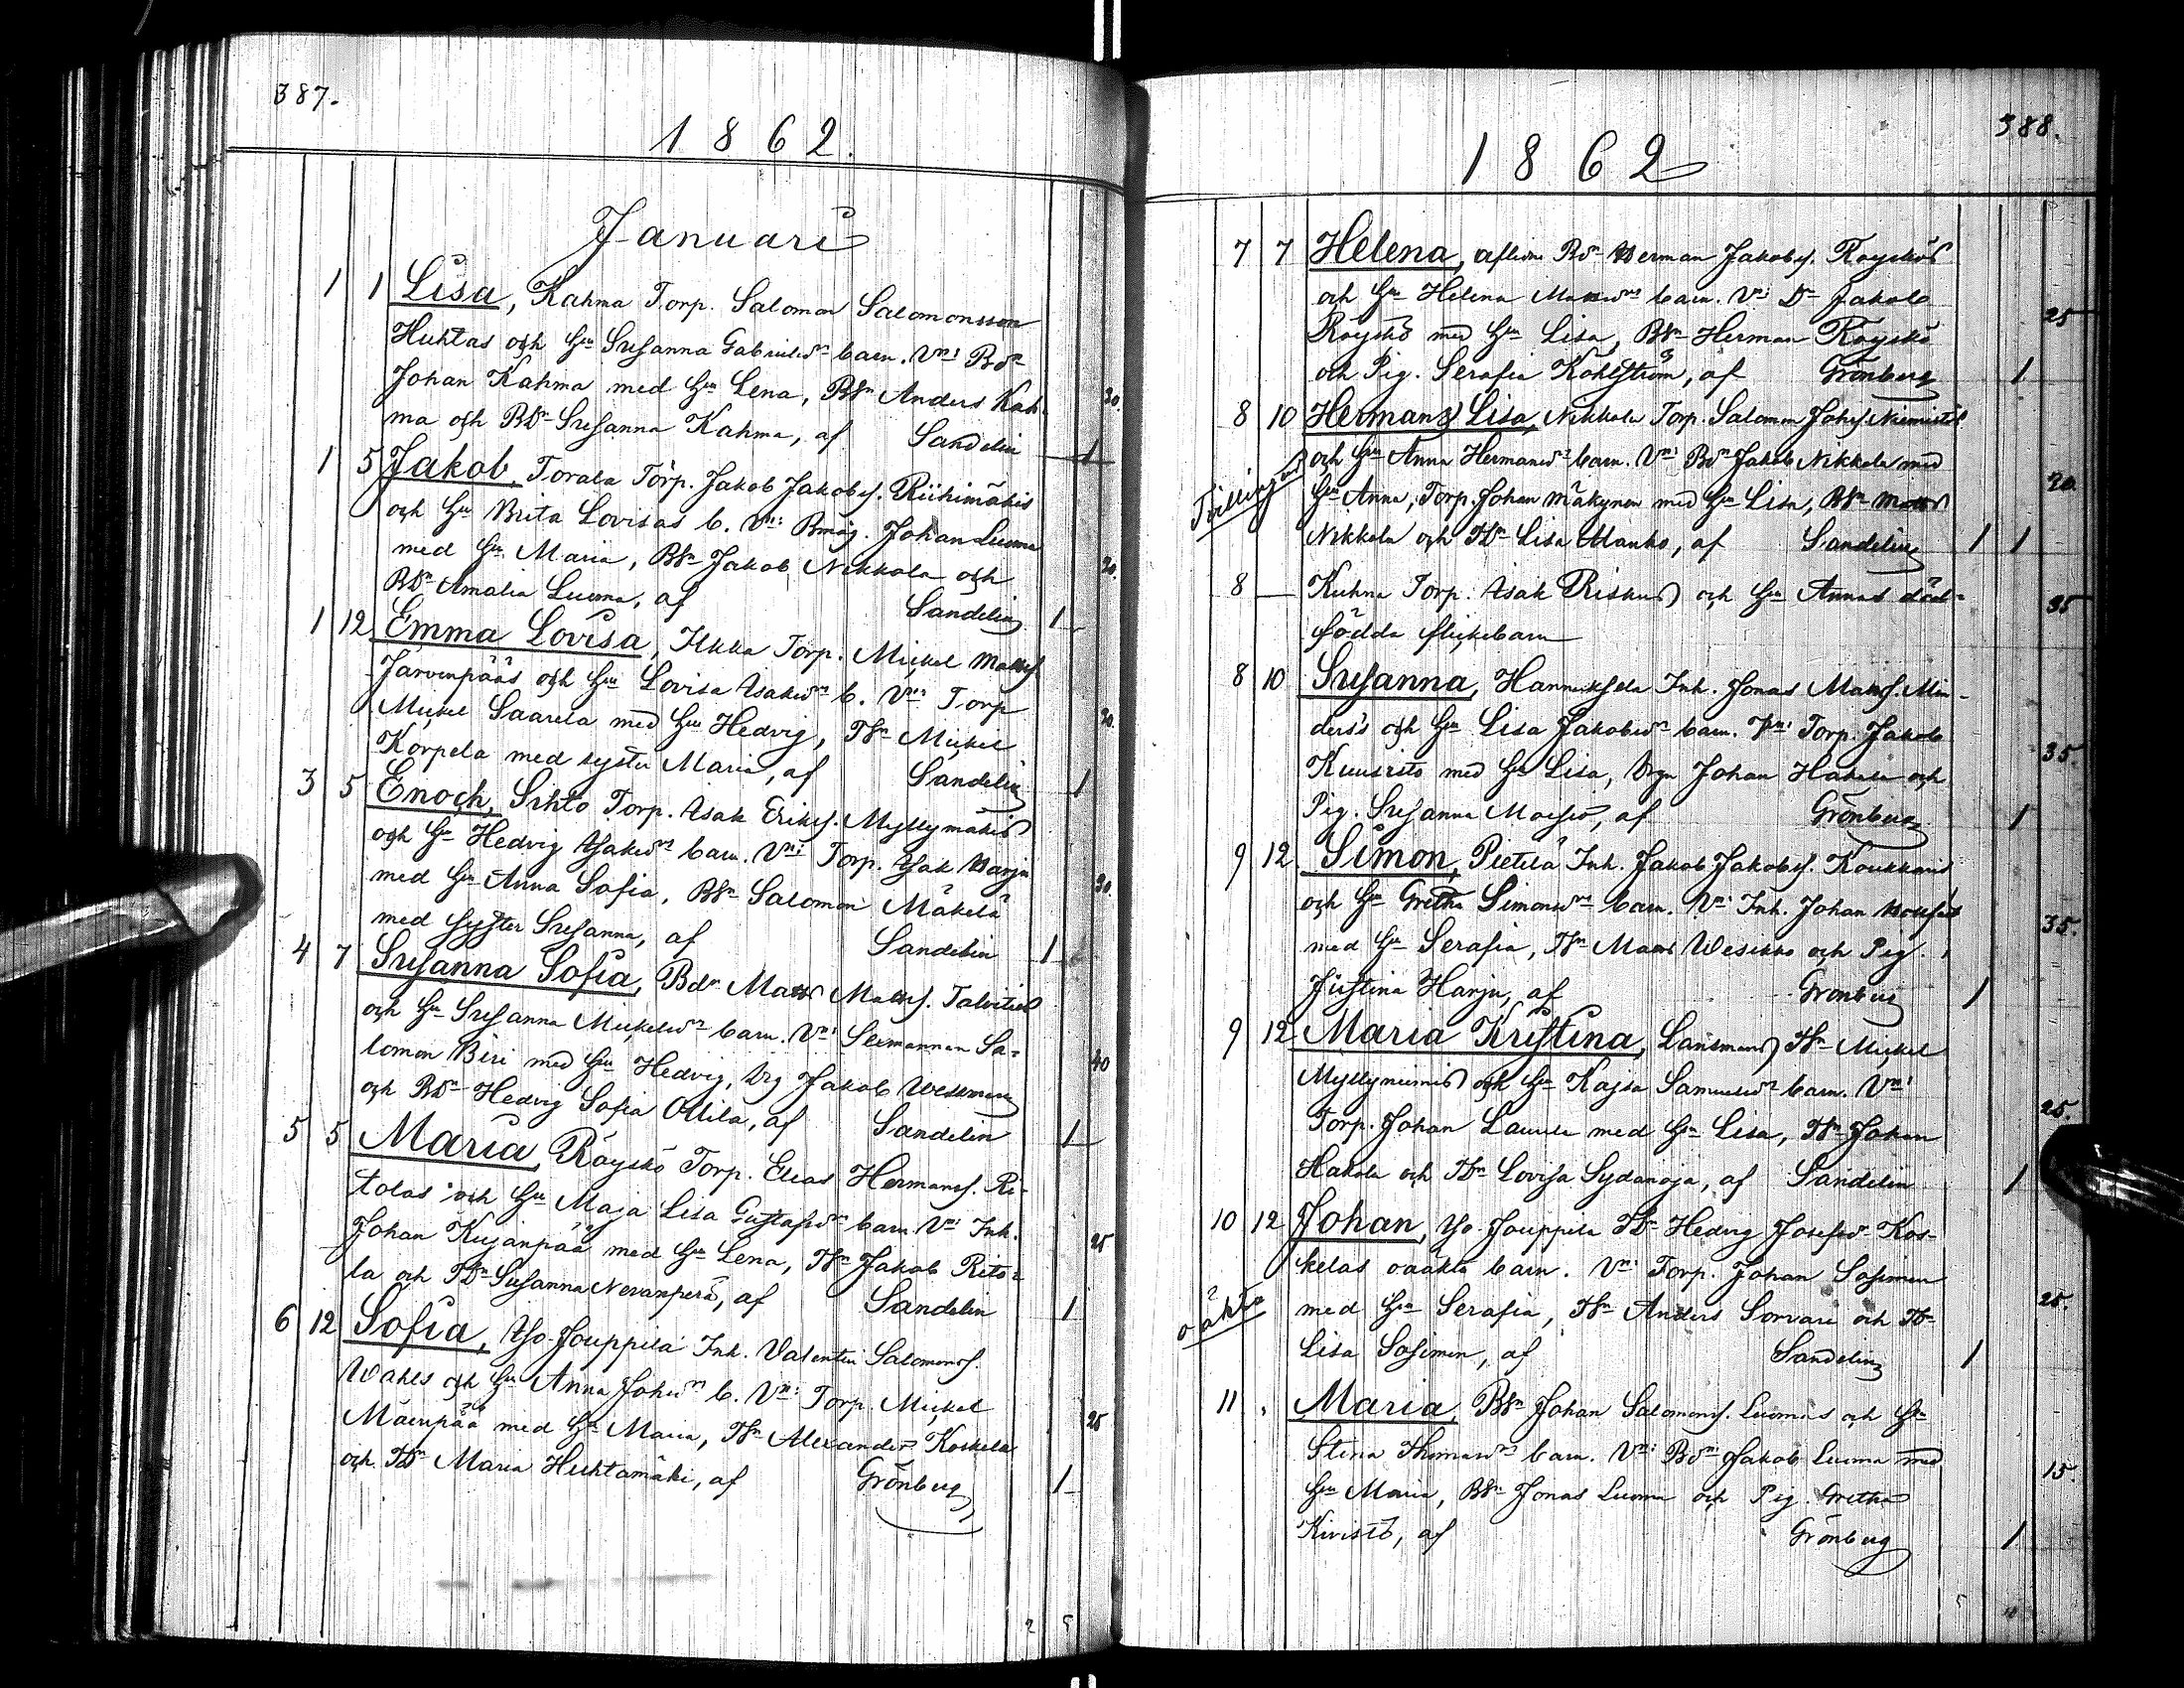 387.
1862.
Januari
1 1 Lisa, Kahma Torp. Salomon Salomonsson
Huhtas och Hu Susanna Gabrielsdr barn. Vn: Bdn
Johan Kahma med Hu Lena, BSn Anders Kah-
ma och BDr Susanna Kahma, af Sandelin 1 30.
1 5 Jakob, Torala Torp. Jakob Jakobss. Riihimäkis
och Hu Brita Lovisas b. Vn: Bmåg. Johan Luoma
med Hu Maria, BSn Jakob Nikkola och
BDr Amalia Luoma, af Sandelin 1 20.
1 12 Emma Lovisa, Ilkka Torp. Mickel Matss.
Jarvenpääs och Hu Lovisa Isaksdr b. Vn: Torp
Mickel Saarela med Hu Hedvig, TSn Mickel
Korpela med syster Maria, af Sandelin 1 20.
3 5 Enoch, Sihto Torp. Isak Erikss. Myllymäkis
och Hu Hedvig Isaksdr barn. Vn: Torp. Isak Harju
med Hu Anna Sofia, BSn Salomon Mäkelä
med syster Susanna, af Sandelin 1 30.
4 7 Susanna Sofia, Bdn Matts Matss. Talvities
och Hu Susanna Mickelsdr barn. Vn: Sexmannen Sa-
lomon Biri med Hu Hedvig, Drg Jakob
och BDr Hedvig Sofia Ollila, af Sandelin 1 40
5 5 Maria, Röyskö Torp. Elias Hermanss. Ri-
tolas och Hu Maja Lisa Gustafsdr barn. Vn: Inh.
Johan Kujanpää med Hu Lena, TSn Jakob Rito-
la och TDr Susanna Neranperä, af Sandelin 1 25
6 12 Sofia, Yo-Jouppila Inh. Valentin Salomonss.
Wahls och Hu Anna Johsdr b. Vn: Torp. Mickel
Mäenpää med Hu Maria, TSn Alexander Koskela
och TDr Maria Huhtamäki, af Grönberg 1 25
2 5
388.
1862
7 7 Helena, aflidne Bdn Herman Jakobss. Röyskös
och Hu Helena barn. Vn: Bdn Jakob
Röyskö med Hu Lisa, BSn Herman Röyskö
och Pig. Serafia Kohlström, af Grönberg 1 25
8 10 Herman & Lisa, Nikkola Torp. Salomon Johss. Niemistös
och Hu Anna Hermansdr barn. Vn: Bdn Jakob Nikkola med
Tvillingar
Hu Anna, Torp. Johan Mäkynen med Hu Lisa, BSn Matts
Nikkola och TDr Lisa Manko, af Sandelin 1 1 20.
8 — Kuhna Torp. Isak Riskus och Hu Annas död-
födda flickebarn 35
8 10 Susanna, Hannuksela Inh. Jonas Matss. Min-
ders's och Hu Lisa Jakobsdr barn. Vn: Torp. Jakob
Kuusisto med Hu Lisa, Drgn Johan Hakala och
Pig. Susanna, af Grönberg 1 35.
9 12 Simon, Pietilä Inh. Jakob Jakobss. Koukkaris
och Hu Gretha Simonsdr barn. Vn: Inh. Johan
med Hu Serafia, TSn Matts Wesikko och Pig.
Justina Harju, af Grönberg 1 35.
9 12 Maria Kristina, Länsmans TSn Mickel
Myllyniemis och Hu Kajsa Samuelsdr barn. Vn:
Torp. Johan Laurila med Hu Lisa, TSn Johan
Hakola och TDr Lovisa Sydänoja, af Sandelin 1 25.
10 12 Johan, Yo-Jouppila TDr Hedvig Josefsdr Kos-
kelas oäkta barn. Vn: Torp. Johan Sosimen
oäkta
med Hu Serafia, TSn Anders Sorvari och TDr
Lisa Sosimen, af Sandelin 1 25.
11 Maria, BSn Johan Salomonss. Luomas och Hu
Stina Thomasdr barn. Vn: Bdn Jakob Luoma med
Hu Maria, BSn Jonas Luoma och Pig. Gretha
Kivistö, af Grönberg 1 15.
5 10